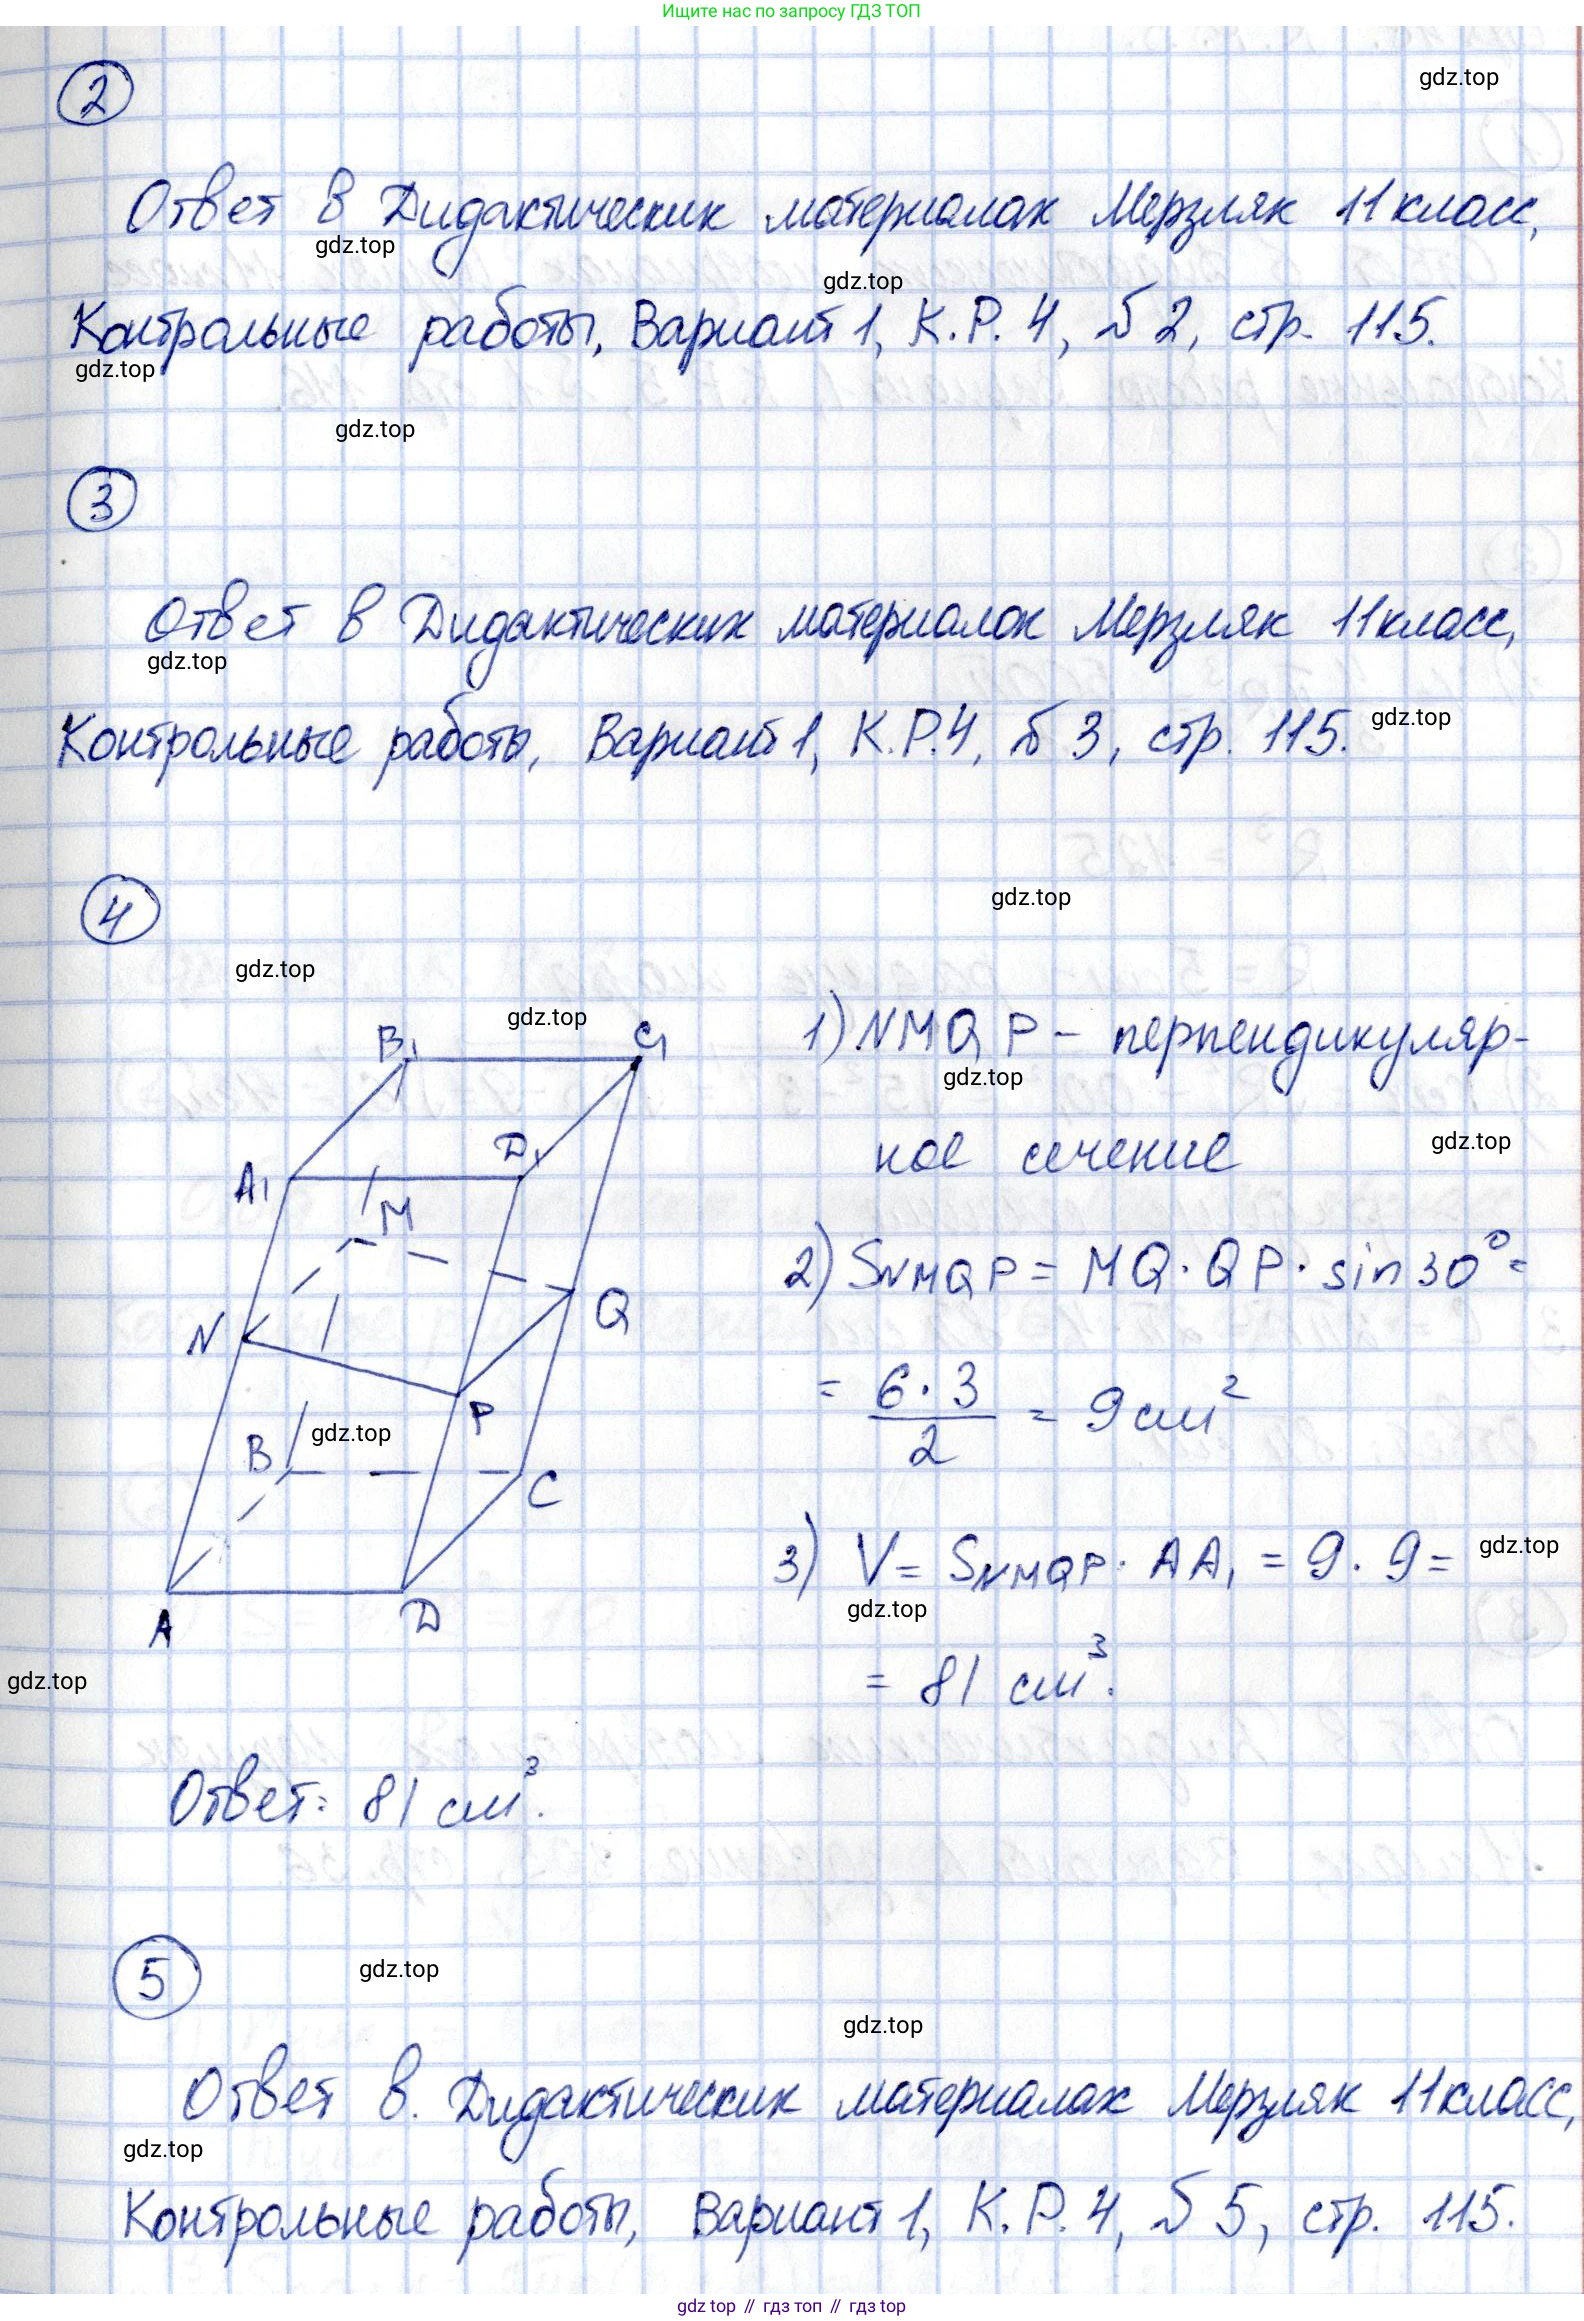 Ищите нас по запросу ГДЗ ТОП
gdz.top
2
Ответ в Дидактических материалах Мерзляк 11 класс,
gdz.top
gdz.top
Контрольные работы, Вариант 1, К.Р. 4, № 2, стр. 115.
gdz.top
gdz.top
3
Ответ в Дидактических материалах Мерзляк 11 класс,
gdz.top
Контрольные работы, Вариант 1, К.Р. 4, № 3, стр. 115.
gdz.top
4
gdz.top
gdz.top
gdz.top
B₁ C₁
A₁ D₁
M
N Q
P
B C
A D
gdz.top
1) NMQP – перпендикуляр-
gdz.top
ное сечение
gdz.top
2) SNMQP = MQ · QP · sin 30° =
= 6·3/2 = 9 см²
3) V = SNMQP · AA₁ = 9 · 9 =
gdz.top
gdz.top
= 81 см³.
gdz.top
Ответ: 81 см³.
5
gdz.top
gdz.top
Ответ в. Дидактических материалах Мерзляк 11 класс,
gdz.top
Контрольные работы, Вариант 1, К.Р. 4, № 5, стр. 115.
gdz top // гдз топ // гдз top